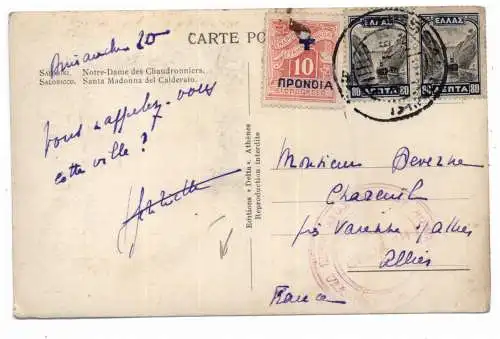 Dimanche 20
CARTE PO
SALONIKI. Notre-Dame des Chaudronniers.
SALONICCO. Santa Madonna del Calderaio.
Vous rappelez-vous
cette ville?
Editions "Delta", Athènes
Reproduction interdite
10
ΠΡΟΝΟΙΑ
ΕΛΛΑΣ
80 ΛΕΠΤΑ 80
ΕΛΛΑΣ
ΛΕΠΤΑ 80
Monsieur
Chareuil
près Varenne s/allier
Allier
France